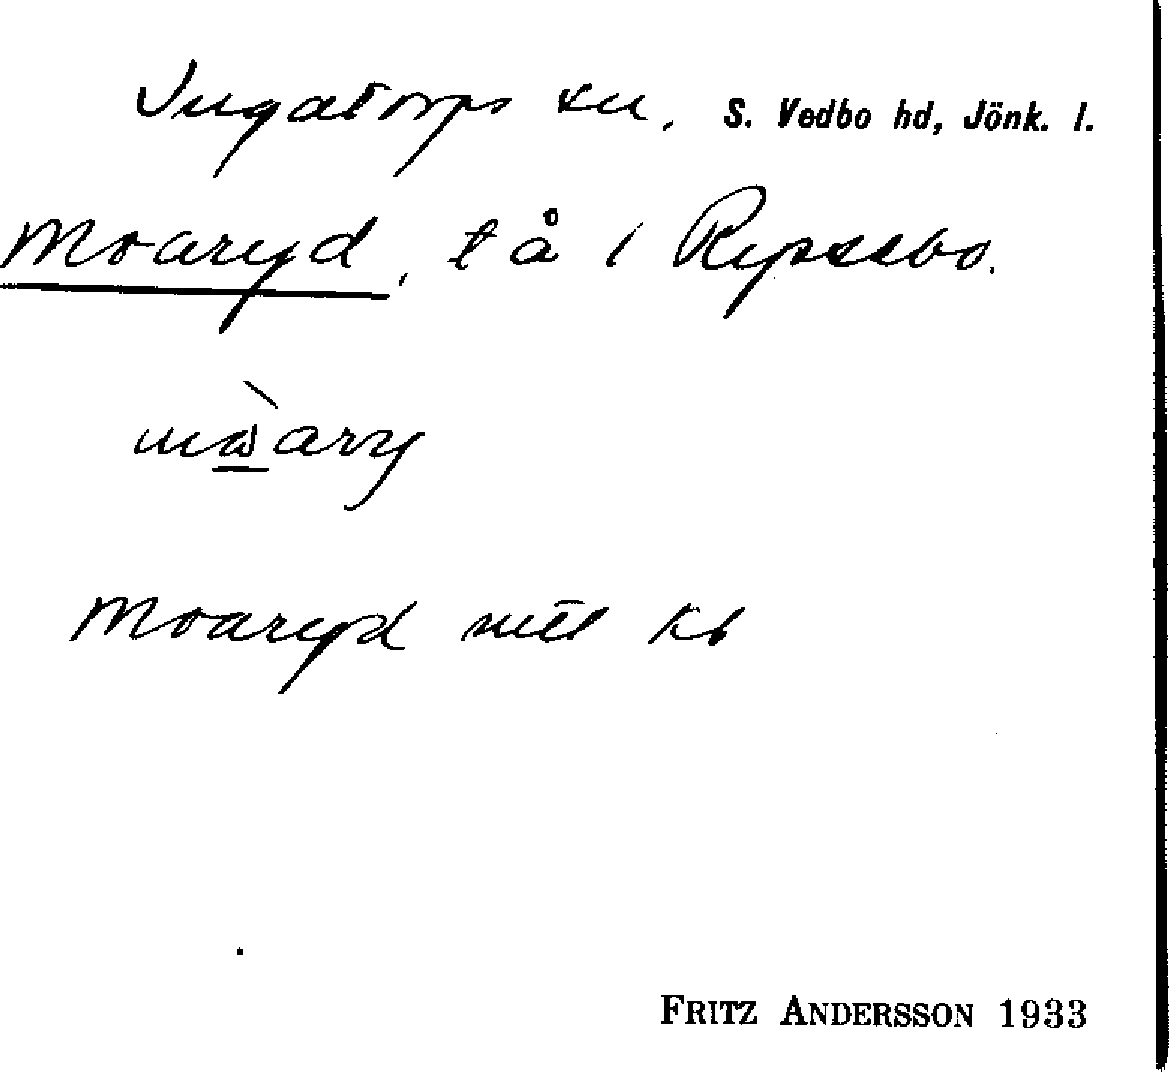 Ingatorps sn, S. Vedbo hd, Jönk. l.
Moaryd, t å i Rypsebo.
Moaryd kb
FRITZ ANDERSSON 1933